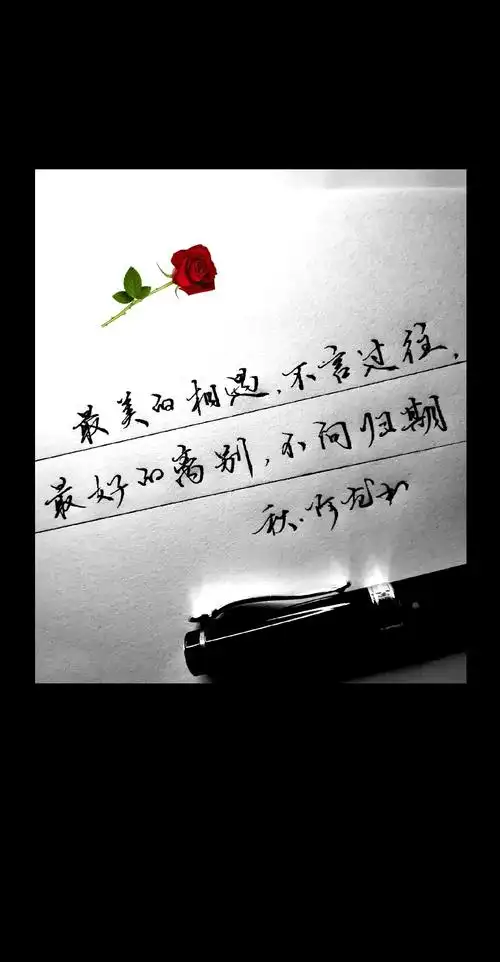 最美的相遇，不言过往，
最好的离别，不问归期
秋